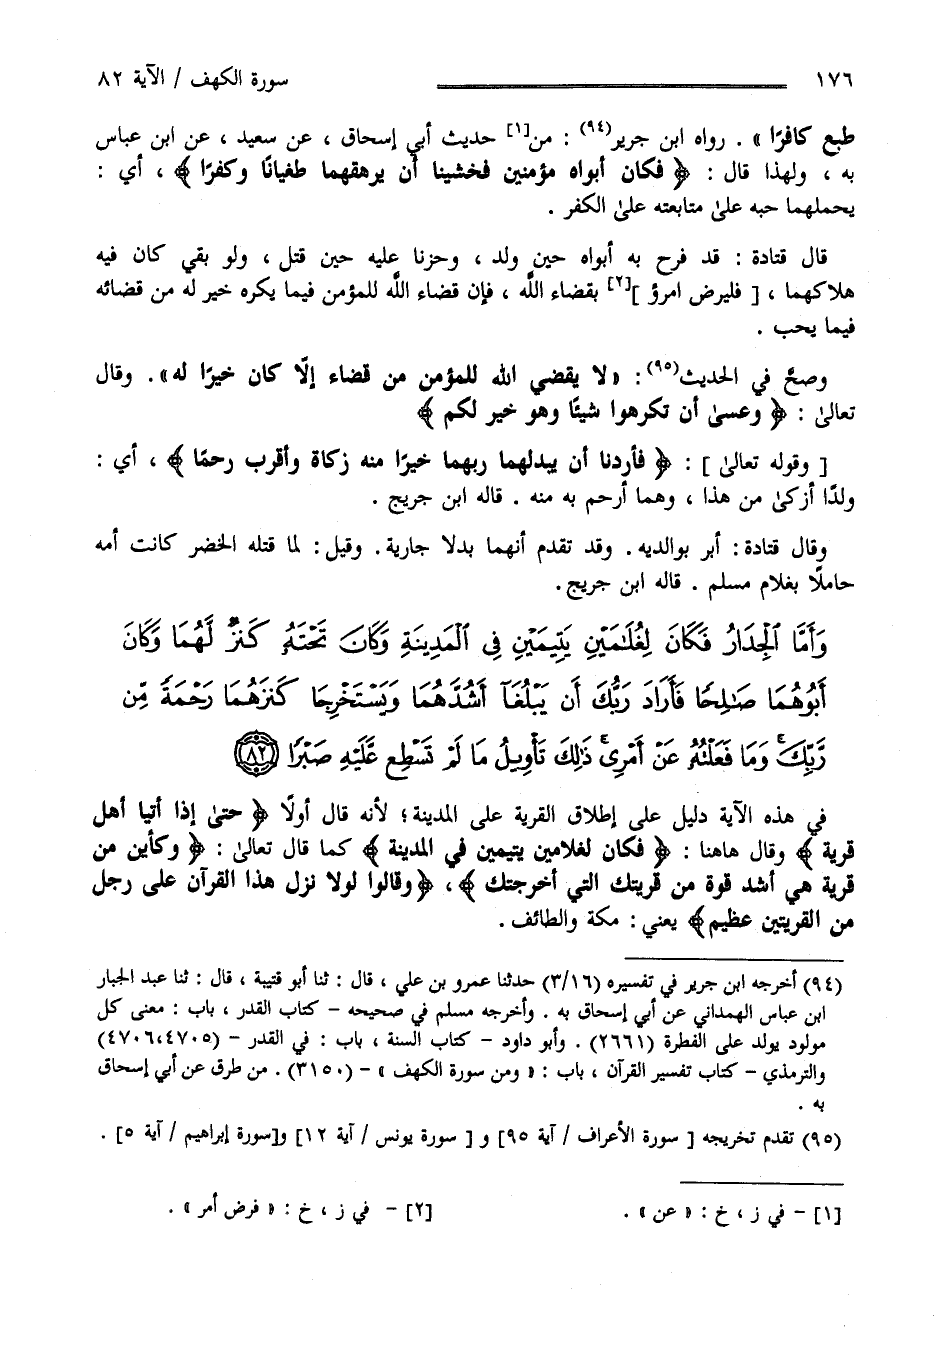 ١٧٦ سورة الكهف / الآية ٨٢
طبع كافرًا » . رواه ابن جرير(٩٤) : من[١] حديث أبي إسحاق ، عن سعيد ، عن ابن عباس
به ، ولهذا قال : ﴿ فكان أبواه مؤمنين فخشينا أن يرهقهما طغيانًا وكفرًا ﴾ ، أي :
يحملهما حبه علىٰ متابعته علىٰ الكفر .
قال قتادة : قد فرح به أبواه حين ولد ، وحزنا عليه حين قتل ، ولو بقي كان فيه
هلاكهما ، [ فليرض امرؤ ][٢] بقضاء اللَّه ، فإن قضاء اللَّه للمؤمن فيما يكره خير له من قضائه
فيما يحب .
وصحَّ في الحديث(٩٥) : « لا يقضي الله للمؤمن من قضاء إلَّا كان خيرًا له» . وقال
تعالىٰ : ﴿ وعسىٰ أن تكرهوا شيئًا وهو خير لكم ﴾
[ وقوله تعالىٰ ] : ﴿ فأردنا أن يبدلهما ربهما خيرًا منه زكاة وأقرب رحمًا ﴾ ، أي :
ولدًا أزكىٰ من هذا ، وهما أرحم به منه . قاله ابن جريج .
وقال قتادة : أبر بوالديه . وقد تقدم أنهما بدلا جارية . وقيل : لما قتله الخضر كانت أمه
حاملًا بغلام مسلم . قاله ابن جريج .
وَأَمَّا ٱلْجِدَارُ فَكَانَ لِغُلَٰمَيْنِ يَتِيمَيْنِ فِى ٱلْمَدِينَةِ وَكَانَ تَحْتَهُۥ كَنزٌ لَّهُمَا وَكَانَ
أَبُوهُمَا صَٰلِحًا فَأَرَادَ رَبُّكَ أَن يَبْلُغَآ أَشُدَّهُمَا وَيَسْتَخْرِجَا كَنزَهُمَا رَحْمَةً مِّن
رَّبِّكَ ۚ وَمَا فَعَلْتُهُۥ عَنْ أَمْرِى ۚ ذَٰلِكَ تَأْوِيلُ مَا لَمْ تَسْطِع عَّلَيْهِ صَبْرًا ﴿٨٢﴾
في هذه الآية دليل على إطلاق القرية على المدينة ؛ لأنه قال أولًا ﴿ حتىٰ إذا أتيا أهل
قرية ﴾ وقال هاهنا : ﴿ فكان لغلامين يتيمين في المدينة ﴾ كما قال تعالىٰ : ﴿ وكأين من
قرية هي أشد قوة من قريتك التي أخرجتك ﴾ ، ﴿وقالوا لولا نزل هذا القرآن على رجل
من القريتين عظيم﴾ يعني : مكة والطائف .
(٩٤) أخرجه ابن جرير في تفسيره (٣/١٦) حدثنا عمرو بن علي ، قال : ثنا أبو قتيبة ، قال : ثنا عبد الجبار
ابن عباس الهمداني عن أبي إسحاق به . وأخرجه مسلم في صحيحه - كتاب القدر ، باب : معنى كل
مولود يولد على الفطرة (٢٦٦١) . وأبو داود - كتاب السنة ، باب : في القدر - (٤٧٠٦،٤٧٠٥)
والترمذي - كتاب تفسير القرآن ، باب : « ومن سورة الكهف » - (٣١٥٠) . من طرق عن أبي إسحاق
به .
(٩٥) تقدم تخريجه [ سورة الأعراف / آية ٩٥] و [ سورة يونس / آية ١٢] و[سورة إبراهيم / آية ٥] .
[١] - في ز ، خ : « عن » . [٢] - في ز ، خ : « فرض أمر » .